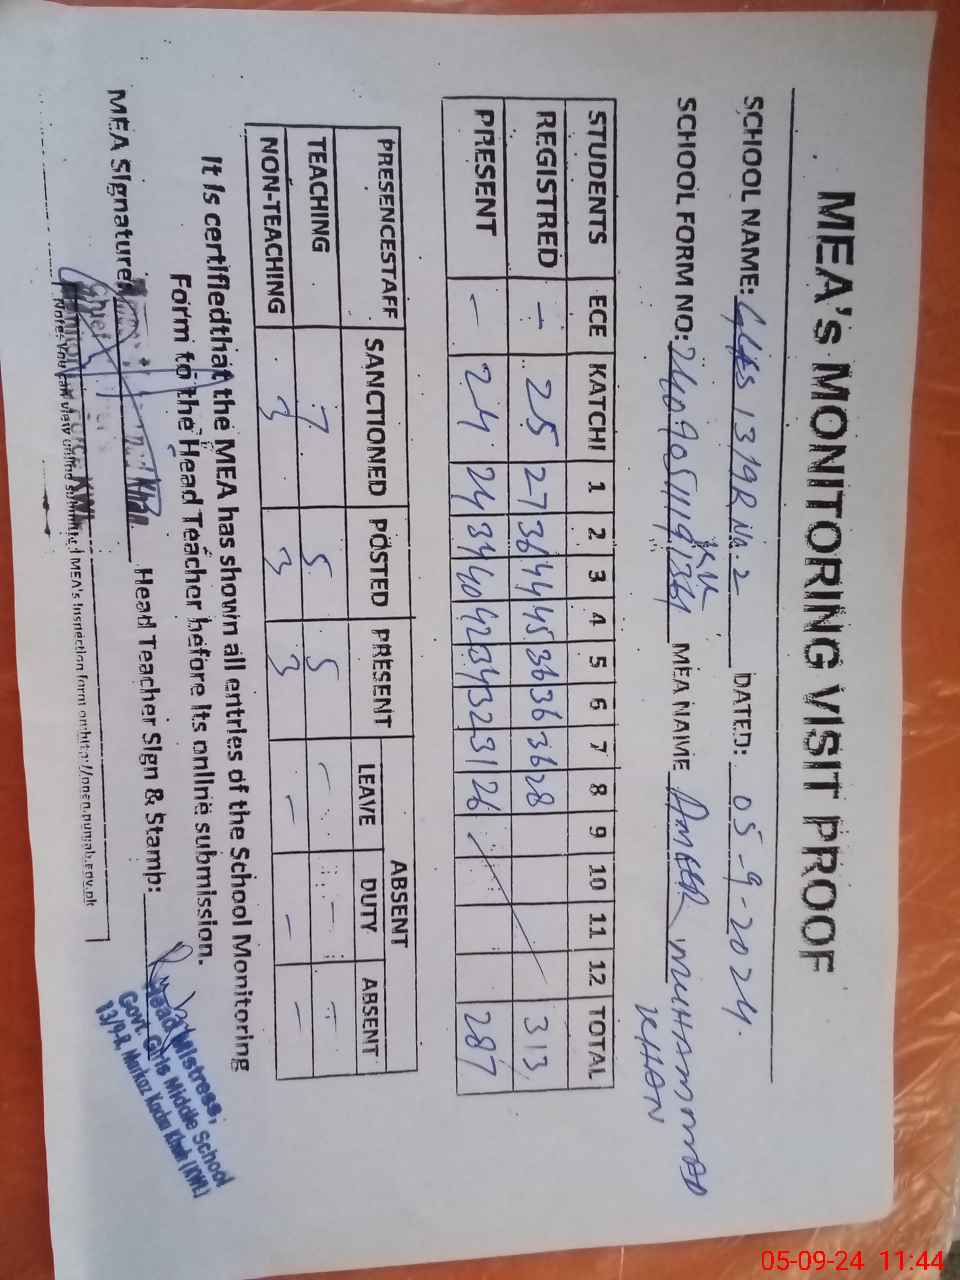 MEA's MONITORING VISIT PROOF
SCHOOL NAME: 13/9R No. 2 DATED: 05-9-2024.
KWL
SCHOOL FORM NO: MEA NAME AMEER MUHAMMAD
KHAN
STUDENTS ECE KATCHI 1 2 3 4 5 6 7 8 9 10 11 12 TOTAL
REGISTRED – 25 27 36 44 45 36 36 36 28 313
PRESENT – 24 24 34 40 42 34 32 31 26 287
PRESENCESTAFF SANCTIONED POSTED PRESENT ABSENT
LEAVE DUTY ABSENT
TEACHING 7 5 5 – – –
NON-TEACHING 3 3 3 – – –
It is certifiedthat the MEA has shown all entries of the School Monitoring
Form to the Head Teacher before its online submission.
MEA Signature: Head Teacher Sign & Stamp:
Head Mistress,
Govt. Girls Middle School
13/9-R, Markaz Kacha Khuh (KWL)
Note: You can view online submitted MEA's Inspection form on
05-09-24 11:44